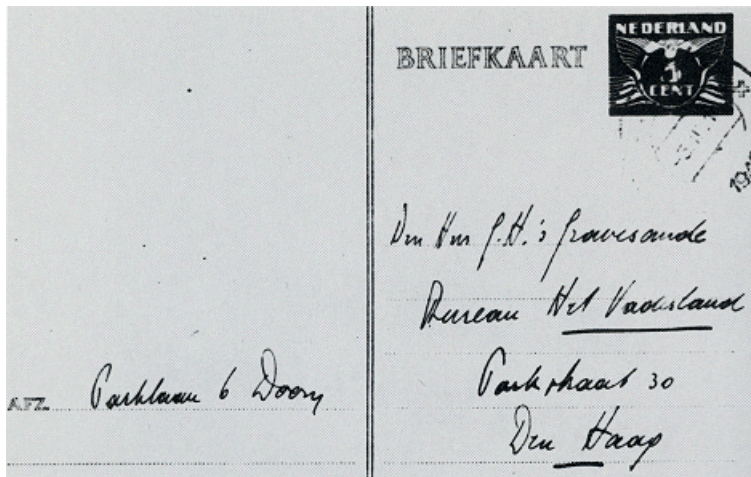 NEDERLAND
BRIEFKAART
CENT
Den Heer G.H. 's Gravesande
Bureau Het Vaderland
Parkstraat 30
Den Haag
AFZ. Parklaan 6 Doorn